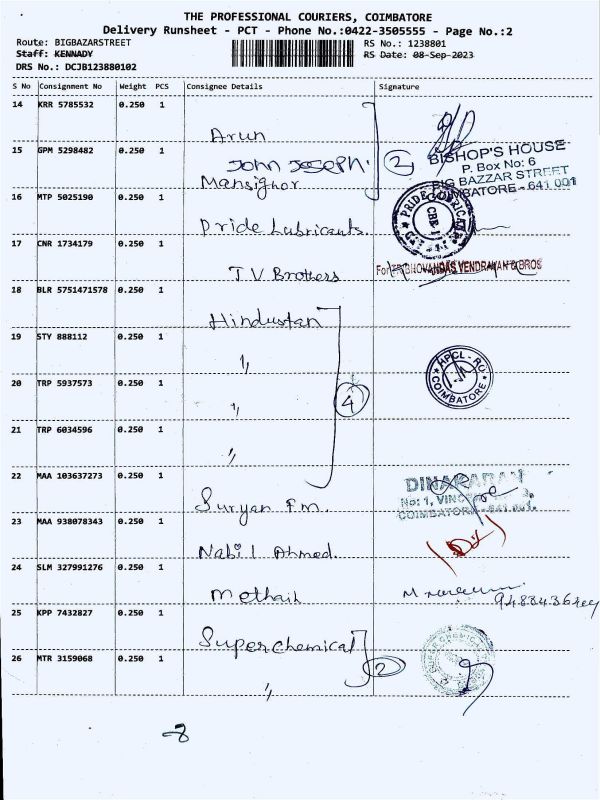 THE PROFESSIONAL COURIERS, COIMBATORE
Delivery Runsheet - PCT - Phone No.:0422-3505555 - Page No.:2
Route: BIGBAZARSTREET RS No.: 1238801
Staff: KENNADY RS Date: 08-Sep-2023
DRS No.: DCJB123880102
S No Consignment No Weight PCS Consignee Details Signature
14 KRR 5785532 0.250 1 Arun
15 GPM 5298482 0.250 1 John Joseph 2
Mansighor
BISHOP'S HOUSE
P. Box No: 6
BIG BAZZAR STREET
COIMBATORE - 641 001
16 MTP 5025190 0.250 1 Pride Lubricants.
PRIDE LUBRICANTS CBE-1
17 CNR 1734179 0.250 1 T.V Brothers
For TRIBHOVANDAS VENDRAVAN & BROS
18 BLR 5751471578 0.250 1 Hindustan
19 STY 888112 0.250 1 "
HPCL - RO COIMBATORE
20 TRP 5937573 0.250 1 " 4
21 TRP 6034596 0.250 1 "
22 MAA 103637273 0.250 1 Suryan F.m.
DINAKARAN
No: 1,
COIMBATORE - 641 001.
23 MAA 938078343 0.250 1 Nabil Ahmed.
24 SLM 327991276 0.250 1 Methail
25 KPP 7432827 0.250 1 Super Chemical
26 MTR 3159068 0.250 1 " 2
-8